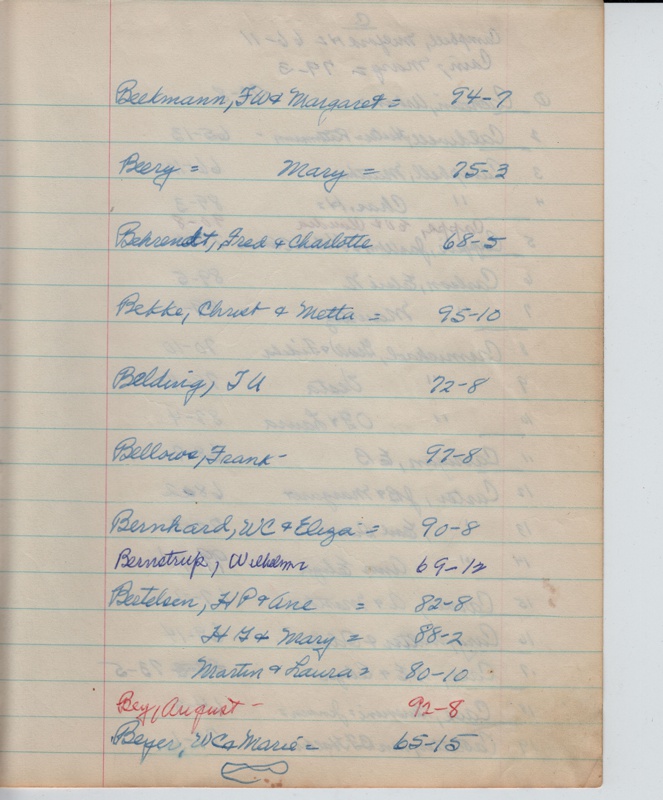 Beekmann, FW & Margaret = 94-7
Beery = Mary = 75-3
Behrendt, Fred & Charlotte 68-5
Bekke, Christ & Metta = 95-10
Belding, J U 72-8
Bellows, Frank - 97-8
Bernhard, WC & Eliza = 90-8
Bernstrup, Wilhelm 69-12
Bertelsen, H P & Ane = 82-8
H & Mary = 88-2
Martin & Laura = 80-10
Bey, August - 92-8
Beyer, WC & Marie = 65-15